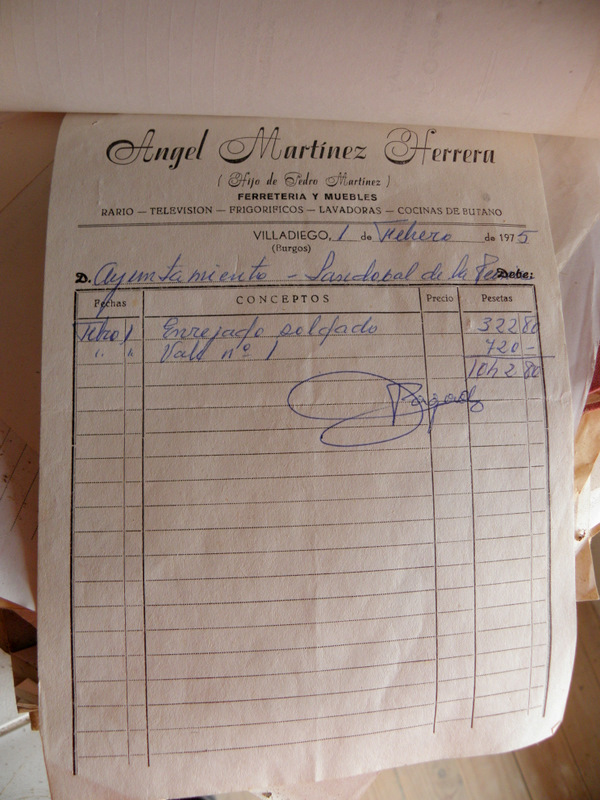 Angel Martínez Herrera
( Hijo de Pedro Martínez )
FERRETERIA Y MUEBLES
RARIO — TELEVISION — FRIGORIFICOS — LAVADORAS — COCINAS DE BUTANO
VILLADIEGO, 1 de Febrero de 1975
(Burgos)
D. Ayuntamiento - Sandoval de la Debe:
Fechas CONCEPTOS Precio Pesetas
1 Enrejado soldado 322 80
" " Vale nº 1 720 -
1042 80
Pagado